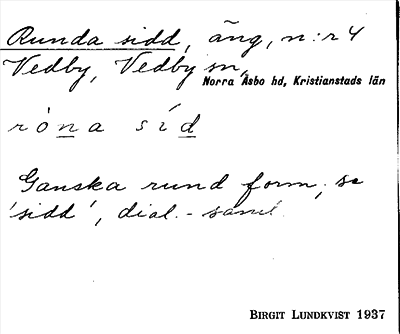 Runda sidd, äng, n:r 4
Vedby, Vedby sn,
Norra Åsbo hd, Kristianstads län
róna síd
Ganska rund form; se
'sidd', dial.-saml.
BIRGIT LUNDKVIST 1937